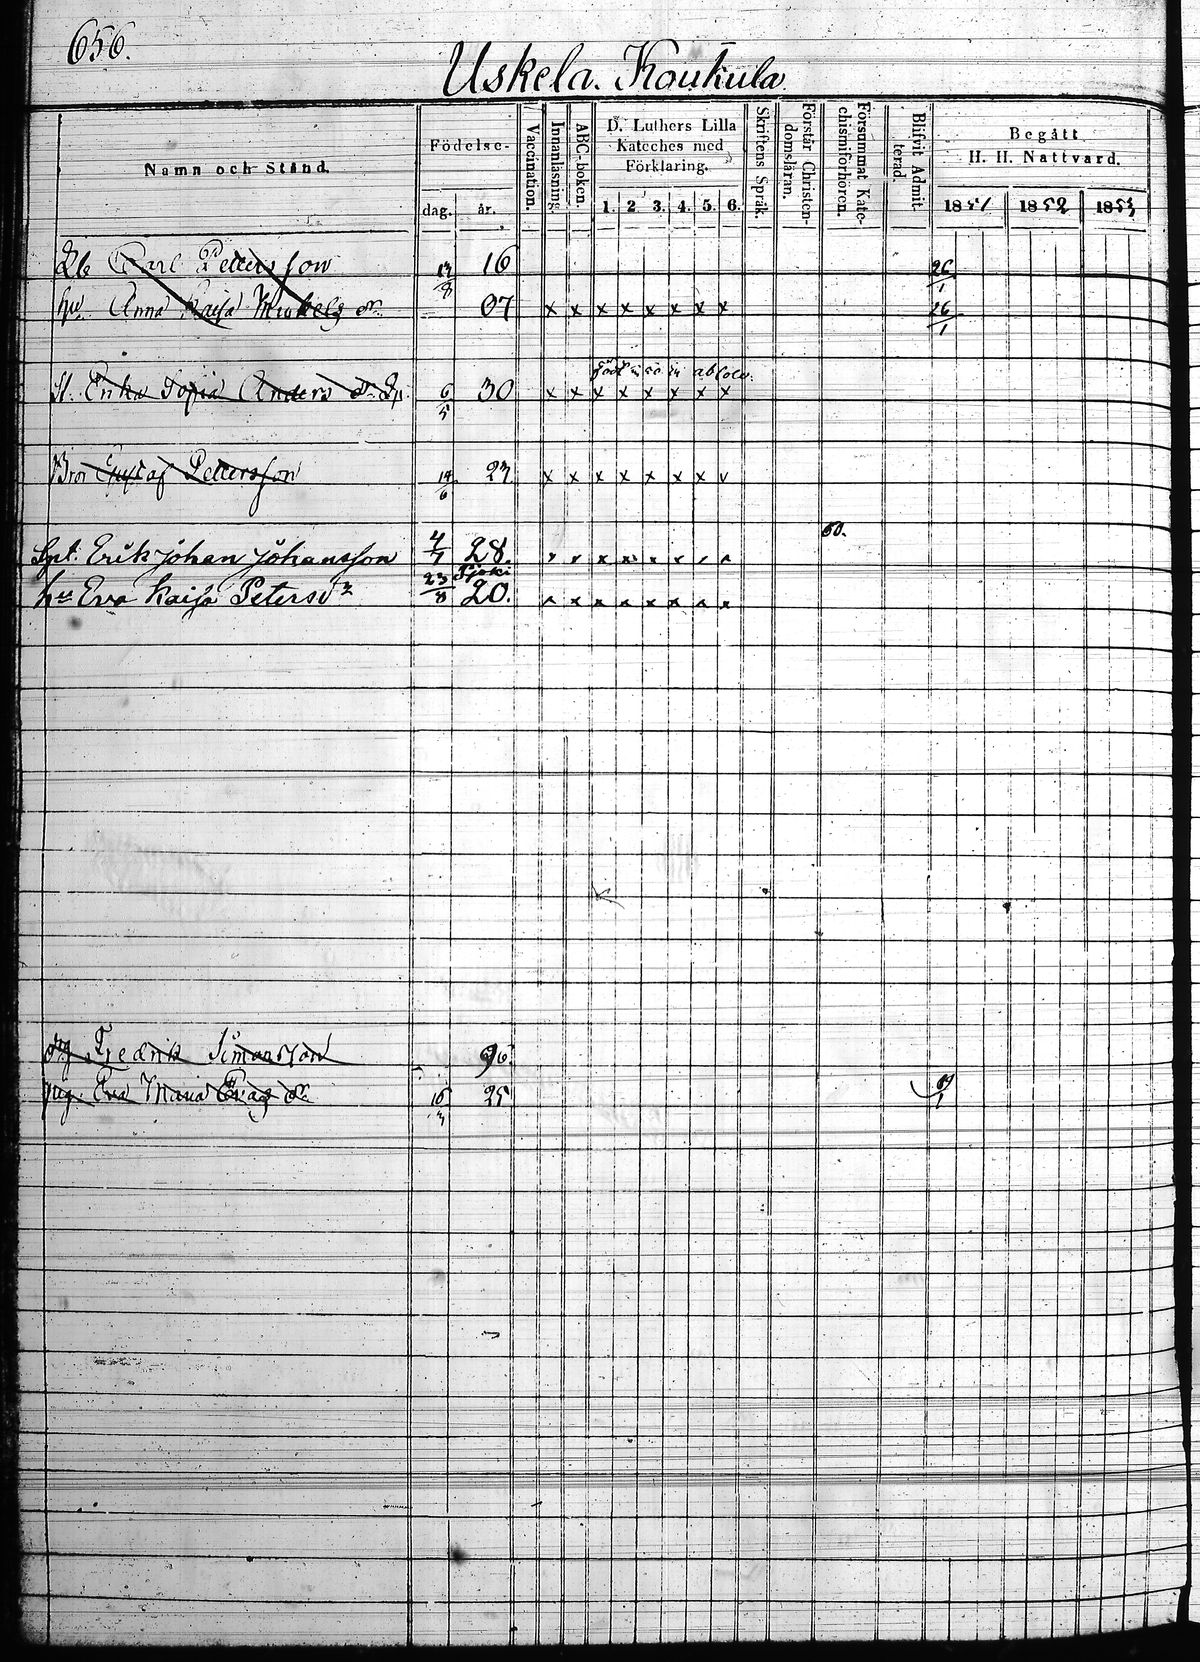 656.
Uskela. Koukula
Namn och Stånd.
Födelse-
dag. år.
Vaccination.
Innanläsning.
ABC-boken.
D. Luthers Lilla
Kateches med
Förklaring.
1. 2. 3. 4. 5. 6.
Skriftens Språk.
Förstår Christen-
domsläran.
Försummat Kate-
chismiförhören.
Blifvit Admit-
terad.
Begått
H. H. Nattvard.
1851 1852 1853
Carl Petters son 16 26/1
hu. Anna Kaisa Mickels dr 07 x x x x x x x x 26/1
Erika Sofia Anders dr 6/5 30 x x x x x x x x
Bror Gustaf Pettersson 14/6 23 x x x x x x x
50.
Erik Johan Johansson 28.
hu Eva Kaisa Peters dr 23/8 20.
Fredrik Simonsson 96
Eva Maria dr 25